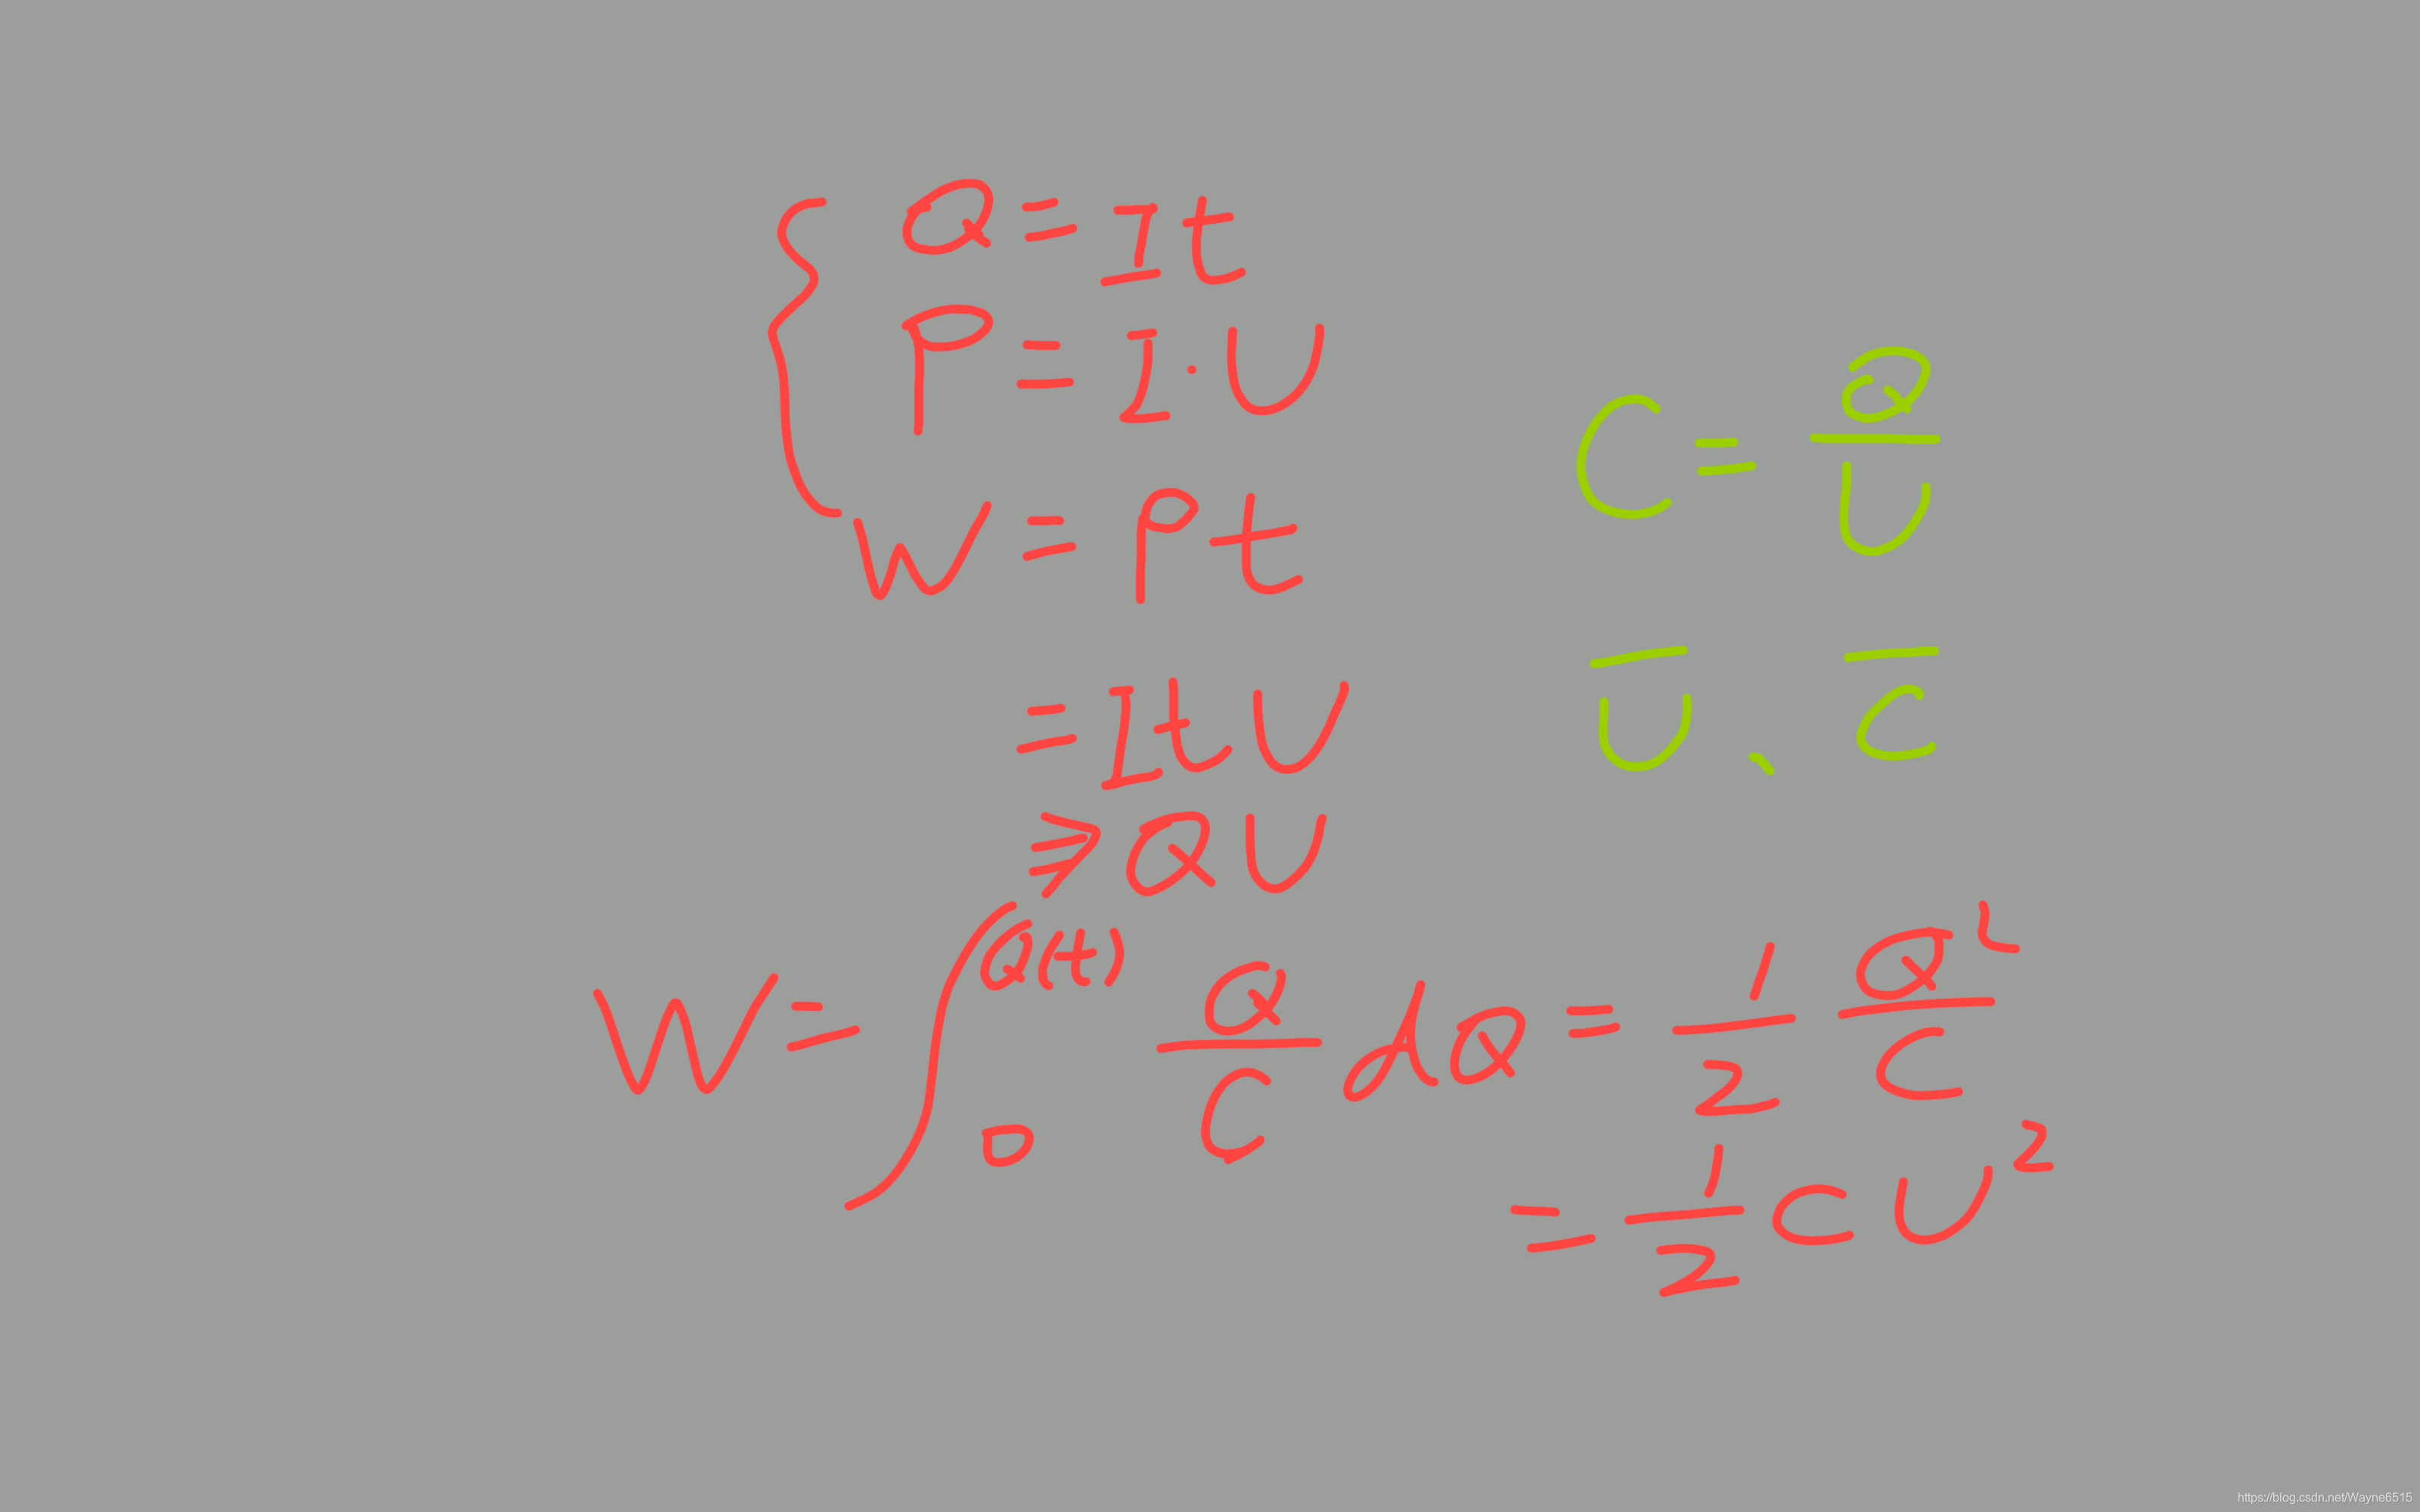 Q = It
P = I · U
W = Pt
= ItU
⩾ QU
C = Q/U
U、C
W = ∫₀^Q(t) Q/C dQ = 1/2 Q²/C
= 1/2 CU²
https://blog.csdn.net/Wayne6515